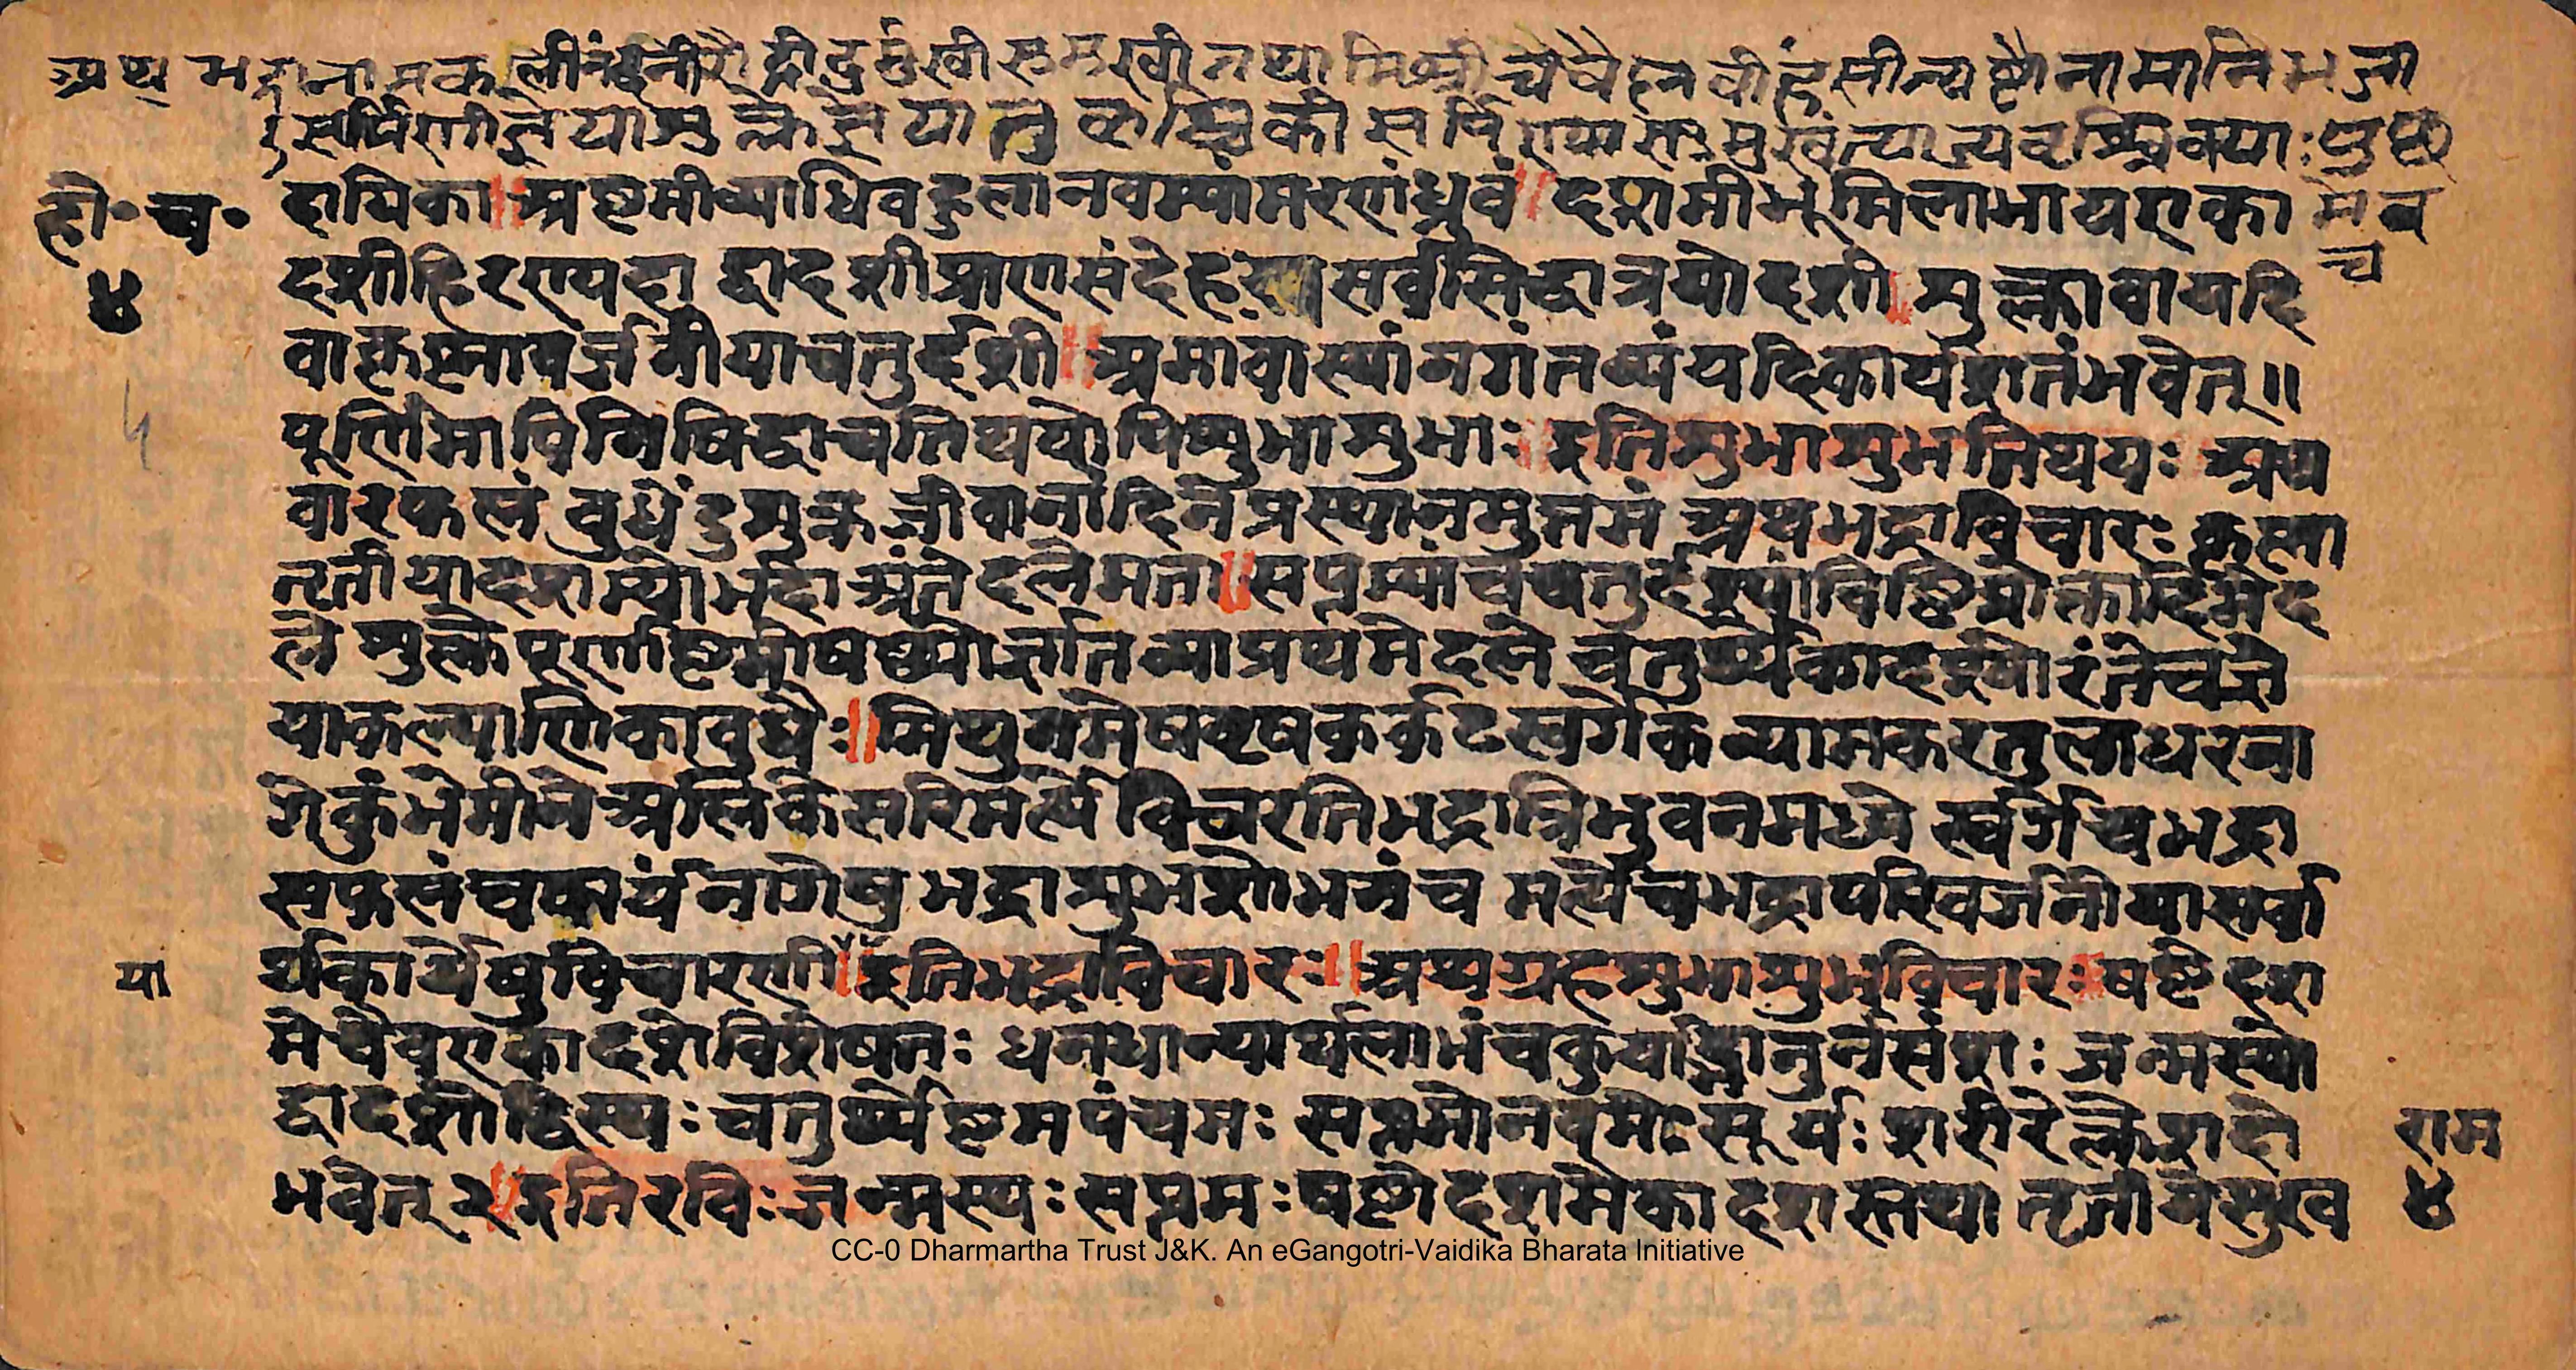 अथ भद्रानाम कलीनंदिनीरौद्री दुर्मुखी सुमुखी तथा मिश्री चैवै हनवी हंसीत्यष्टौनामानिभद्रा
सर्पिणीज्ञेयाशुक्लेज्ञेयातुवृश्चिकी सर्पिण्यास्तुमुखंत्याज्यंवृश्चिक्याः पुछ
मेव
च
हो॰ च॰
४
दायिका॥अष्टमीव्याधिबहुलानवम्यांमरणंध्रुवं॥दशमीभूमिलाभायएका
दशीहिरण्यदा द्वादशीप्राणसंदेह सर्वसिद्धात्रयोदशी॥शुक्लावायदि
वाकृष्णावर्जनीयाचतुर्दशी॥अमांवास्यांनगंतव्यंयदिकार्यशतंभवेत्॥
पूर्णिमाविनिषिद्धाचतिथयोपिशुभाशुभाः॥इतिशुभाशुभतिथयः अथ
वारफलं बुधेंदुशुक्रजीवानांदिनेप्रस्थानमुत्तमं अथभद्राविचारः कृष्णा
तृतीयादशम्योर्भद्रा अंते दलेमता॥सप्तम्यांचचतुर्दश्यांविष्टिप्रोक्तादिमेद
ले शुक्लेपूर्णाष्टमीषष्ठ्योर्ज्ञातव्याप्रथमेदले चतुर्थ्येकादश्योरंतेचज्ञे
याकल्याणिकाबुधैः॥मिथुनमेषवृषकर्कटस्वर्गेकन्यामकरतुलाधरना
गेकुंभेमीनेअलिकेसरिमर्त्ये विचरतिभद्रात्रिभुवनमध्ये स्वर्गेचभद्रा
सफलंचकार्यंनागेषुभद्राशुभशोभनंच मर्त्येचभद्रापरिवर्जनीयासर्वा
र्थकार्येषुविचारणी॥इतिभद्राविचारः॥अथग्रहशुभाशुभविचारःषष्टेदश
या
मेचैवएकादशेविशेषतः धनधान्यार्थलाभंचकुर्याद्भानुर्नसंशः जन्मस्थो
द्वादशोद्विस्थः चतुर्थ्येष्टमपंचमः सप्तमोनवमोःसूर्यः शरीरेक्लेशदो
भवेत् २॥इतिरविः जन्मस्थः सप्तमः षष्टोदशमेकादशस्तथा तृतीयेसुखव
राम
४
CC-0 Dharmartha Trust J&K. An eGangotri-Vaidika Bharata Initiative